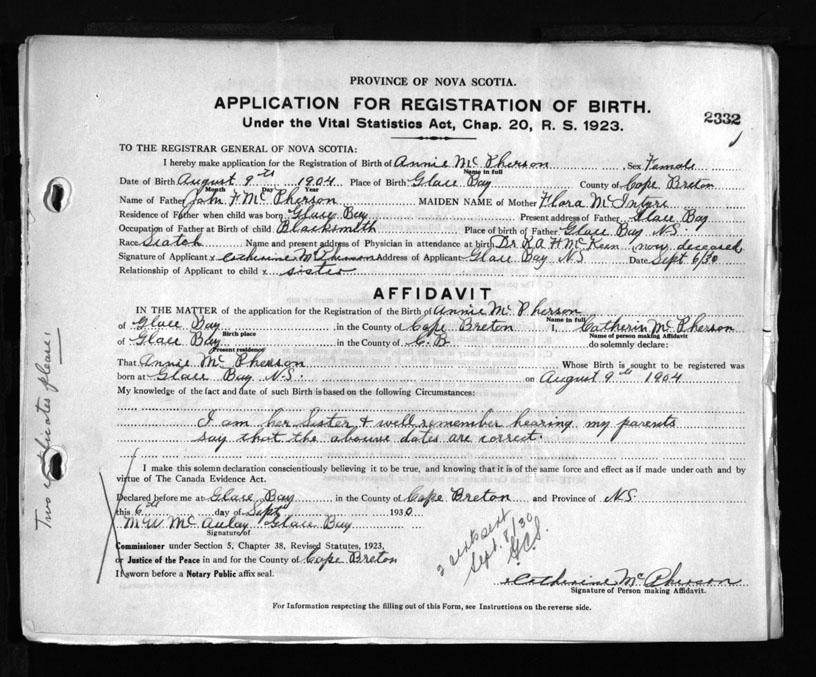 PROVINCE OF NOVA SCOTIA.
APPLICATION FOR REGISTRATION OF BIRTH.
2332
Under the Vital Statistics Act, Chap. 20, R. S. 1923.
TO THE REGISTRAR GENERAL OF NOVA SCOTIA:
I hereby make application for the Registration of Birth of Annie McPherson Sex Female
Name in full
Date of Birth August 9th 1904 Place of Birth Glace Bay County of Cape Breton
Month Day Year
Name of Father John F McPherson MAIDEN NAME of Mother Flora McIntyre
Residence of Father when child was born Glace Bay Present address of Father Glace Bay
Occupation of Father at Birth of child Blacksmith Place of birth of Father Glace Bay N.S.
Race Scotch Name and present address of Physician in attendance at birth Dr. R A H McKeen "now deceased
Signature of Applicant x Catherine McPherson Address of Applicant Glace Bay NS Date Sept 6/30
Relationship of Applicant to child x sister
AFFIDAVIT
IN THE MATTER of the application for the Registration of the Birth of Annie McPherson
Name in full
of Glace Bay in the County of Cape Breton I, Catherin McPherson
Birth place Name of person making Affidavit
of Glace Bay in the County of C.B. do solemnly declare:
Present residence
That Annie McPherson Whose Birth is sought to be registered was
born at Glace Bay N.S. on August 9th 1904
My knowledge of the fact and date of such Birth is based on the following Circumstances:
I am her Sister & well remember hearing my parents
say that the abouve dates are correct.
I make this solemn declaration conscientiously believing it to be true, and knowing that it is of the same force and effect as if made under oath and by
virtue of The Canada Evidence Act.
Declared before me at Glace Bay in the County of Cape Breton and Province of N.S.
this 6th day of Sept 1930
M W McAulay Glace Bay
Signature of
Commissioner under Section 5, Chapter 38, Revised Statutes, 1923,
or Justice of the Peace in and for the County of Cape Breton
If sworn before a Notary Public affix seal.
2 certs sent
Sept. 8/30
G.C.S.
x Catherine McPherson
Signature of Person making Affidavit.
For Information respecting the filling out of this Form, see Instructions on the reverse side.
Two certificates please!